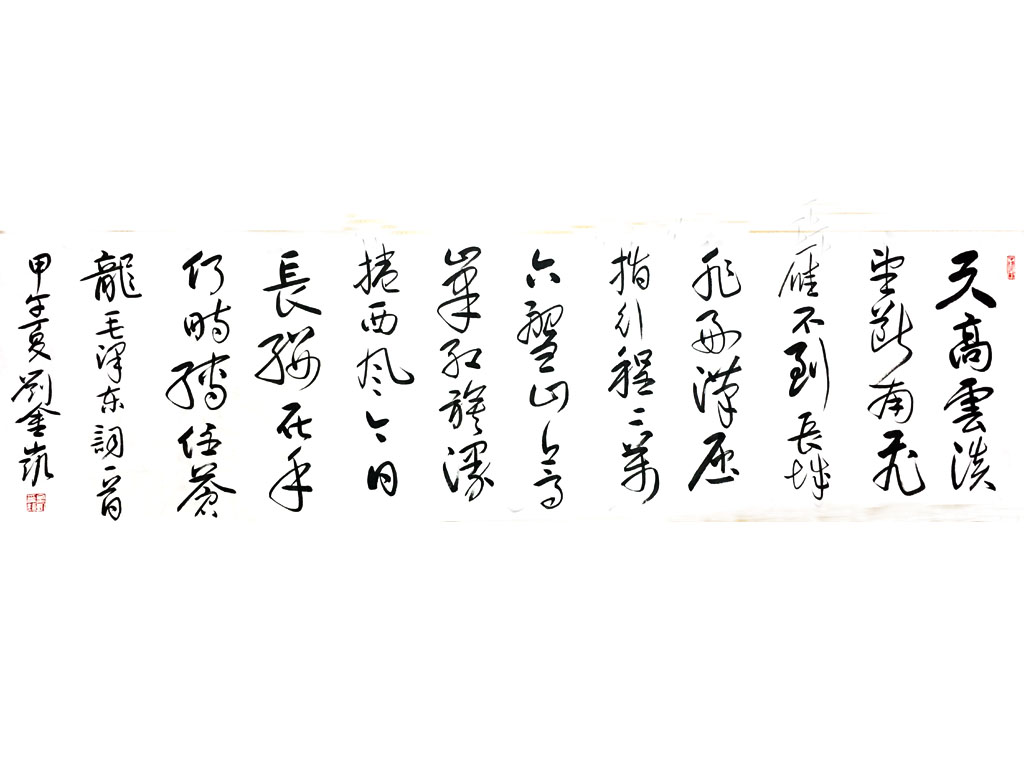 天高雲淡
望斷南飛
雁不到長城
非好漢屈
指行程二萬
六盤山上高
峯紅旗漫
捲西風今日
長纓在手
何時縛住蒼
龍毛澤东詞一首
甲午夏劉金凱